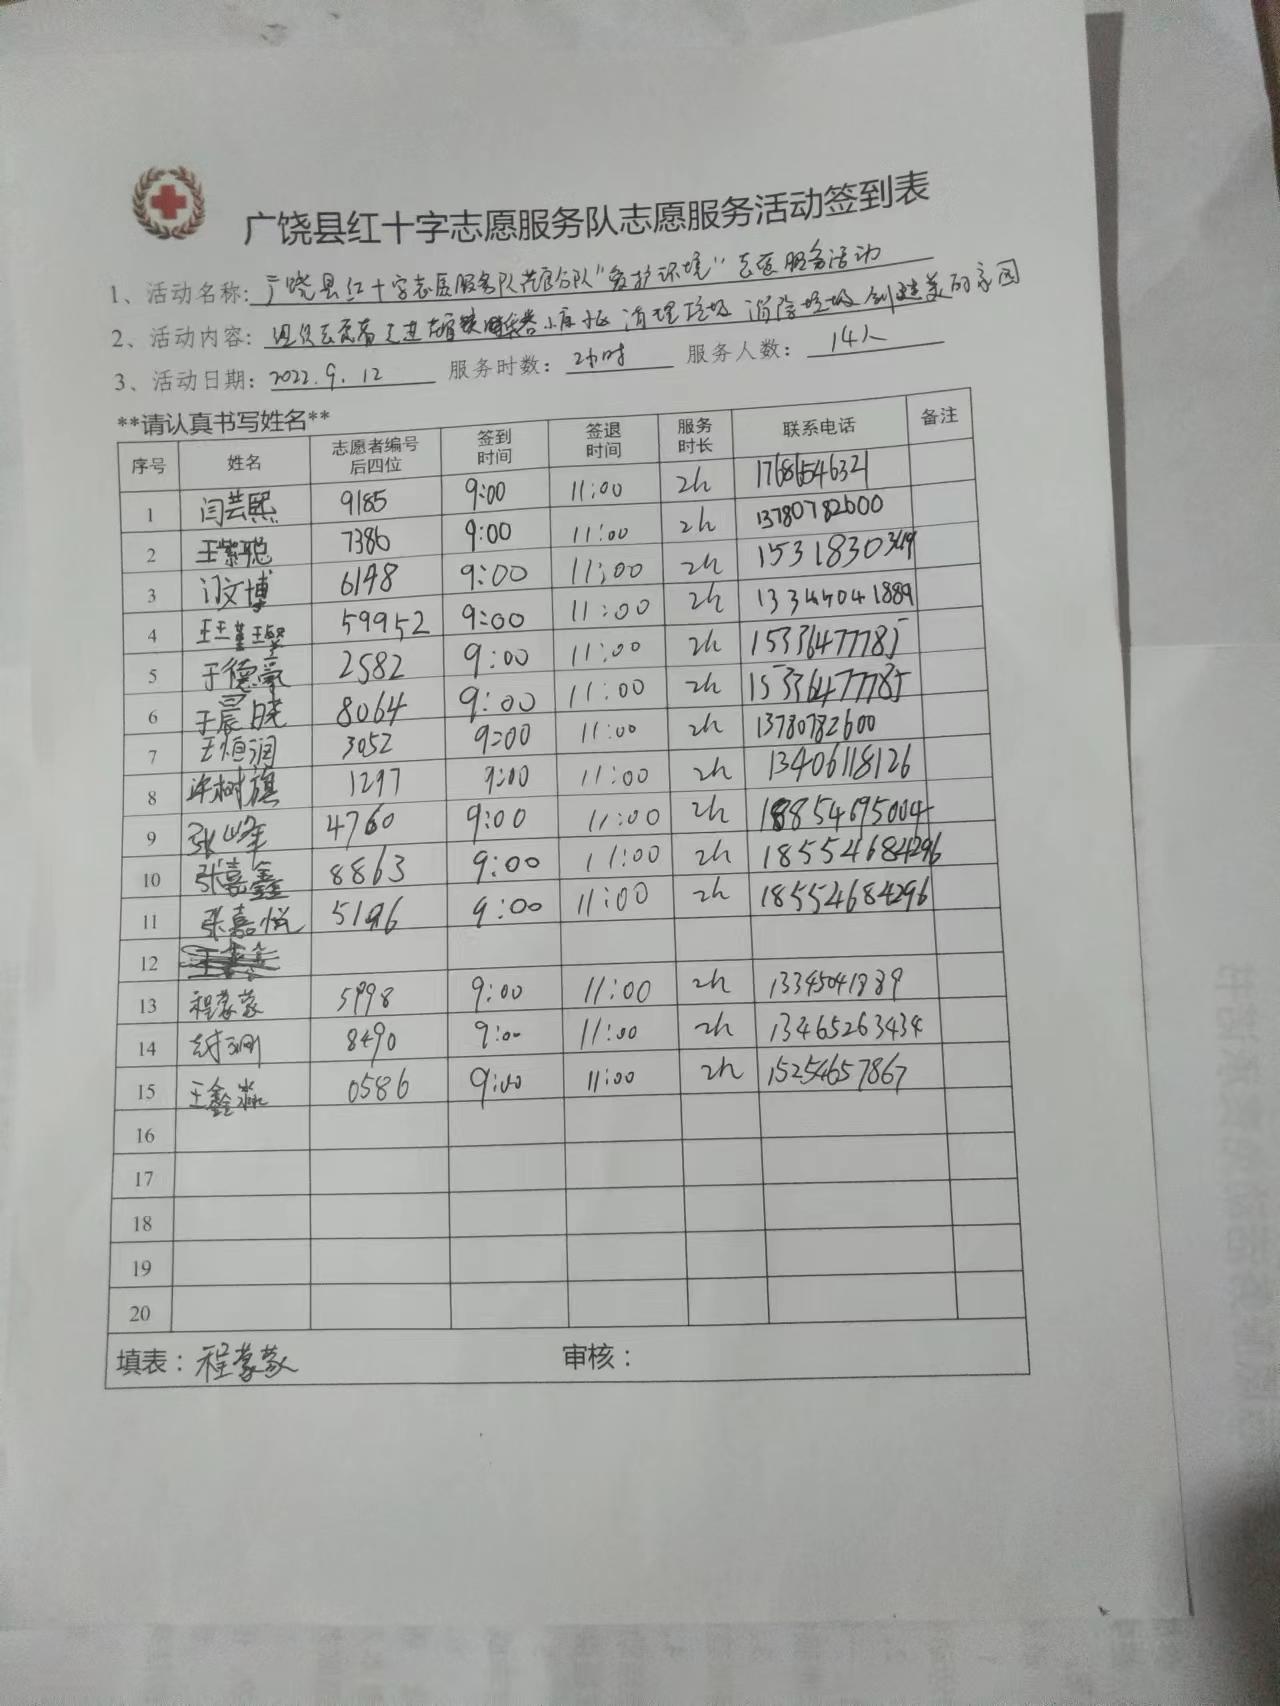 广饶县红十字志愿服务队志愿服务活动签到表
1、活动名称: 广饶县红十字志愿服务队 分队"爱护环境"志愿服务活动
2、活动内容: 组织志愿者 清理垃圾 消除垃圾 创建美的家园
3、活动日期: 2022.9.12 服务时数: 2小时 服务人数: 14人
**请认真书写姓名**
序号 姓名 志愿者编号后四位 签到时间 签退时间 服务时长 联系电话 备注
1 闫芸熙 9185 9:00 11:00 2h 17686546321
2 王紫聪 7386 9:00 11:00 2h 13780782600
3 门文博 6148 9:00 11:00 2h 15318303
4 59952 9:00 11:00 2h 1889
5 于德豪 2582 9:00 11:00 2h 15336477785
6 于晨晓 8064 9:00 11:00 2h 15336477785
7 王恒润 3052 9:00 11:00 2h 13780782600
8 许树旗 1297 9:00 11:00 2h 13406118126
9 张峰 4760 9:00 11:00 2h 18854695004
10 张嘉鑫 8863 9:00 11:00 2h 18554684296
11 张嘉悦 5196 9:00 11:00 2h 18554684296
12
13 程蒙蒙 5998 9:00 11:00 2h 13345041889
14 8490 9:00 11:00 2h 13465263434
15 王鑫淼 0586 9:00 11:00 2h 15254657867
16
17
18
19
20
填表: 程蒙蒙 审核: